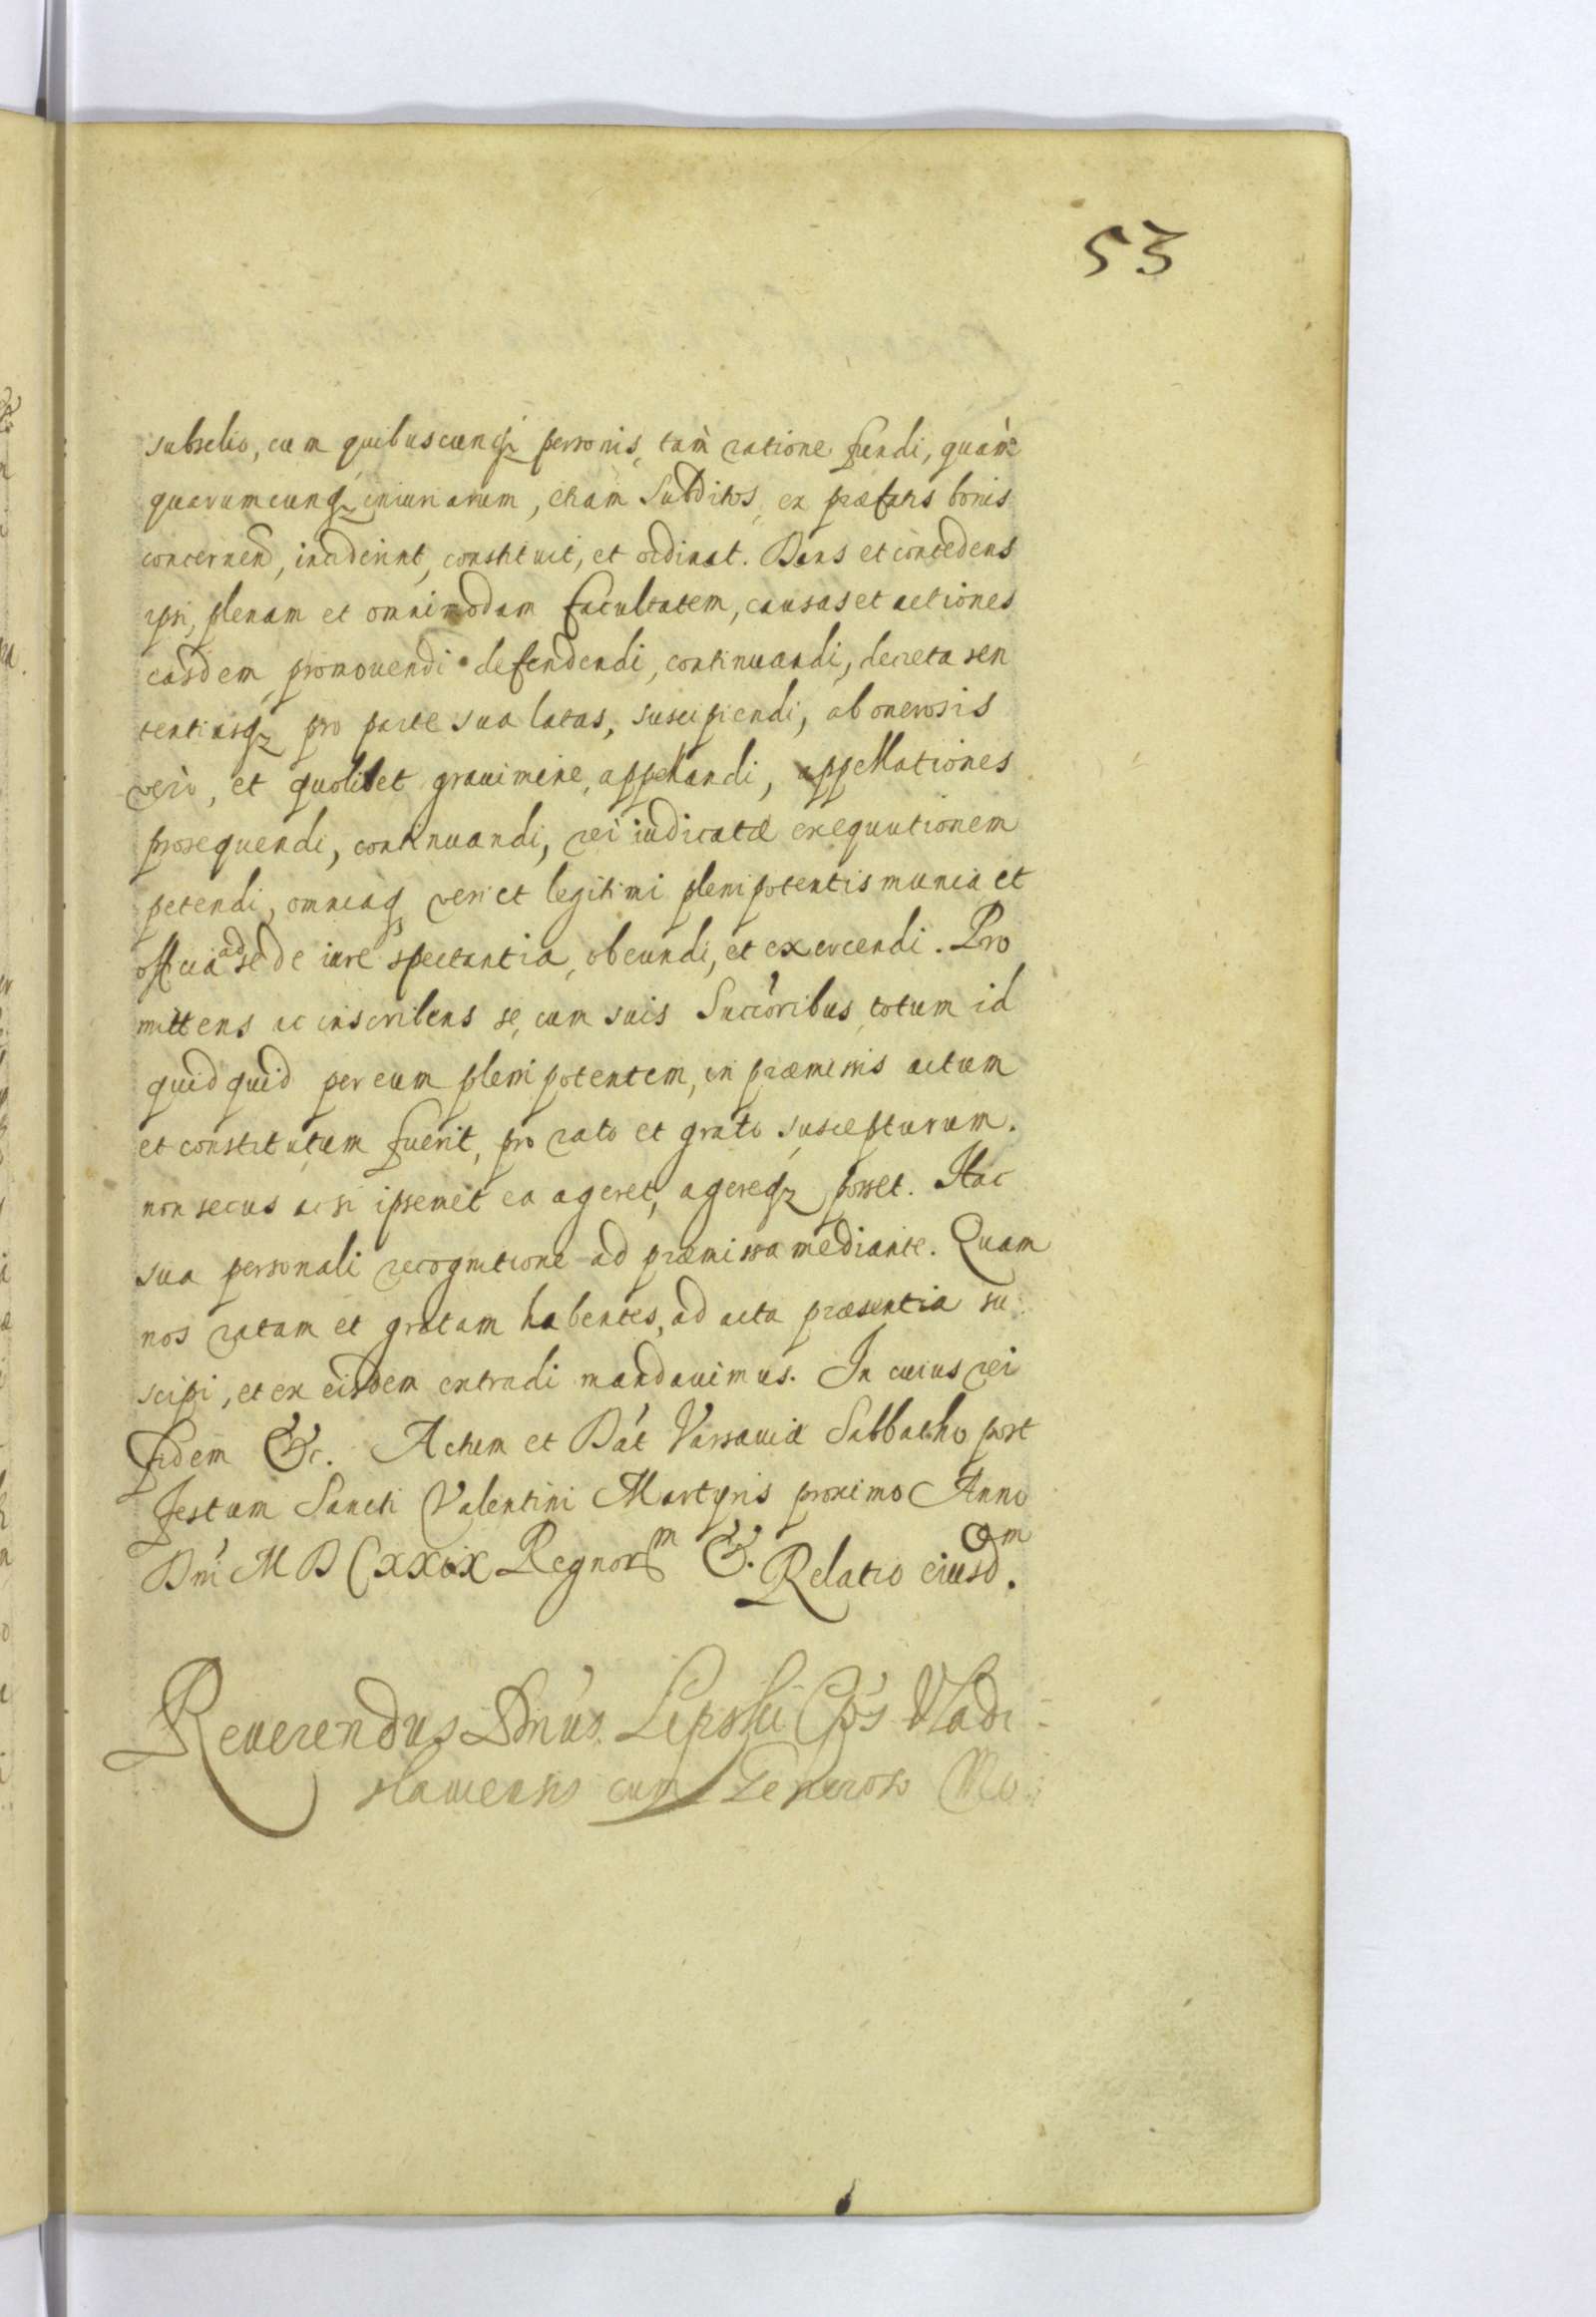 53
subselio, cum quibuscunq; personis, tam̀ ratione fundi, quàm
quarumcunq; iniuriarum, etiam Subditos, ex præfatis bonis
concernen̄, inciderint, constituit, et ordinat. Dans et concedens
ipsi, plenam et omnimodam facultatem, causas et actiones
easdem, promouendi defendendi, continuandi, decreta sen
tentiasq; pro parte sua latas, suscipiendi, ab onerosis
verò, et quolibet grauimine, appellandi, appellationes
prosequendi, continuandi, rei iudicatæ exequutionem
petendi, omniaq; veri et legitimi plenipotentis munia et
officia ad se de iure spectantia, obeundi, et exercendi. Pro
mittens ac inscribens se, cum suis Succoribus, totum id
quidquid per eum plenipotentem, in præmissis actum
et constitutum fuerit, pro rato et grato suscepturum.
non secus ac si ipsemet ea ageret, agereq; posset. Hac
sua personali recognitione ad præmissa mediante. Quam
nos ratam et gratam habentes, ad acta præsentia su
scipi, et ex eisdem extradi mandauimus. In cuius rei
fidem &c. Actum et Dat́ Varsauiæ Sabbatho post
festum Sancti Valentini Martyris proximo Anno
Dnĩ M D CXXIX Regnor m &. Relatio eiusd m.
Reuerendus Dnús Lipski Cp̃s Vladi-
slauiensis cum Generoso